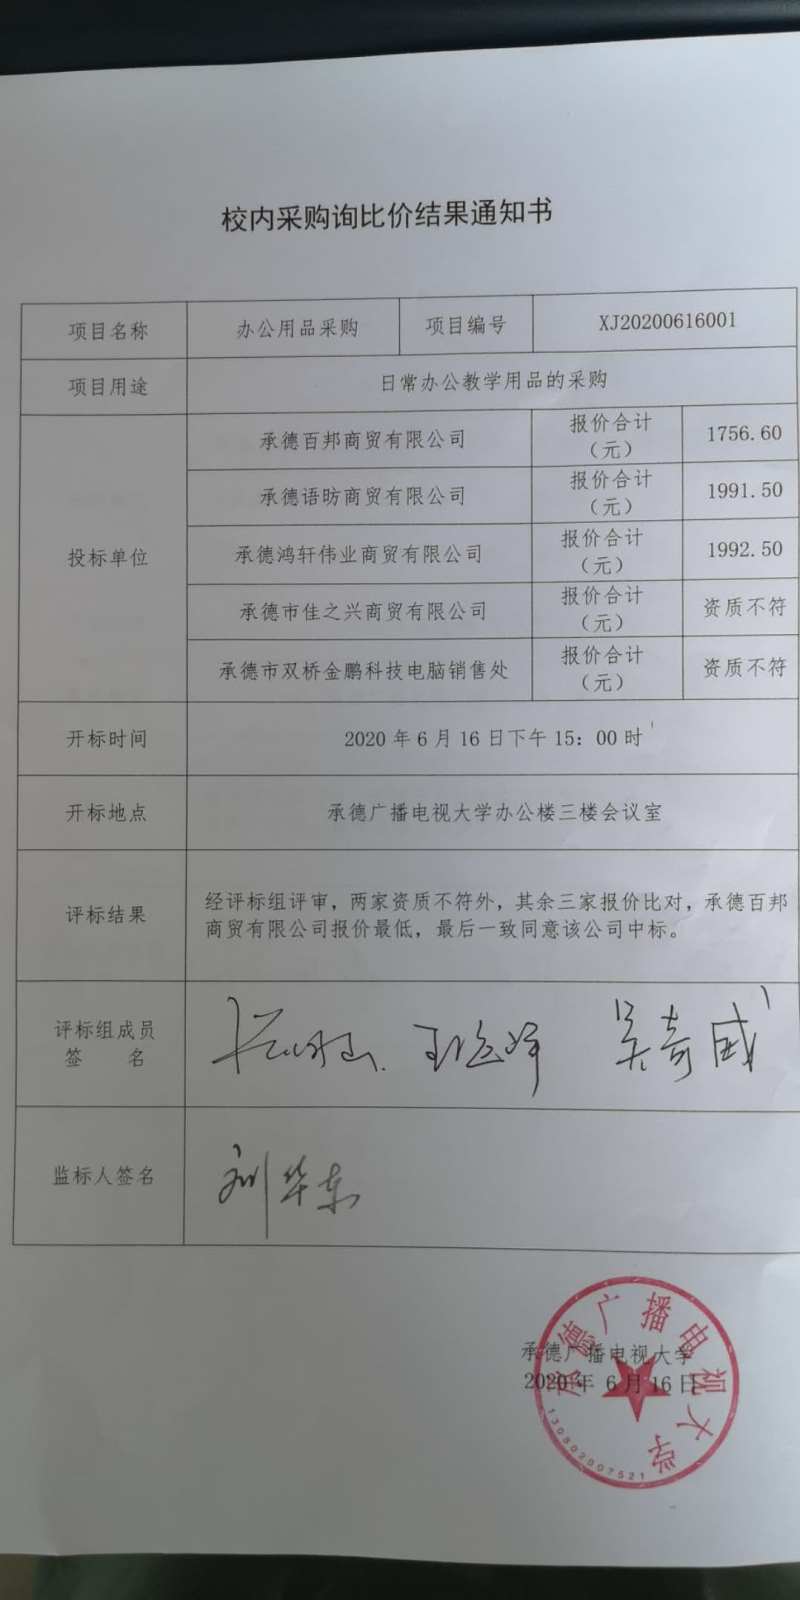 校内采购询比价结果通知书
项目名称 办公用品采购 项目编号 XJ20200616001
项目用途 日常办公教学用品的采购
投标单位
承德百邦商贸有限公司 报价合计（元） 1756.60
承德语昉商贸有限公司 报价合计（元） 1991.50
承德鸿轩伟业商贸有限公司 报价合计（元） 1992.50
承德市佳之兴商贸有限公司 报价合计（元） 资质不符
承德市双桥金鹏科技电脑销售处 报价合计（元） 资质不符
开标时间 2020 年 6 月 16 日下午 15：00 时
开标地点 承德广播电视大学办公楼三楼会议室
评标结果
经评标组评审，两家资质不符外，其余三家报价比对，承德百邦
商贸有限公司报价最低，最后一致同意该公司中标。
评标组成员
签 名
吴奇威
监标人签名 刘华东
承德广播电视大学
2020 年 6 月 16 日
承德广播电视大学
130802007521